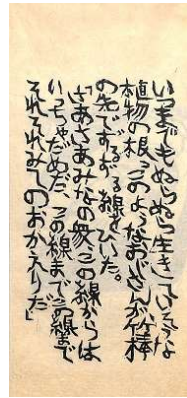 いつまでもぬらぬら生きていそうな
植物の根、このよなおぢさんが竹棒
の先でずるずる線をひいた。
「さあさあみなの衆この線からは
いっちゃだめだ、この線までこの線まで
それそれみてのおかえりだ」